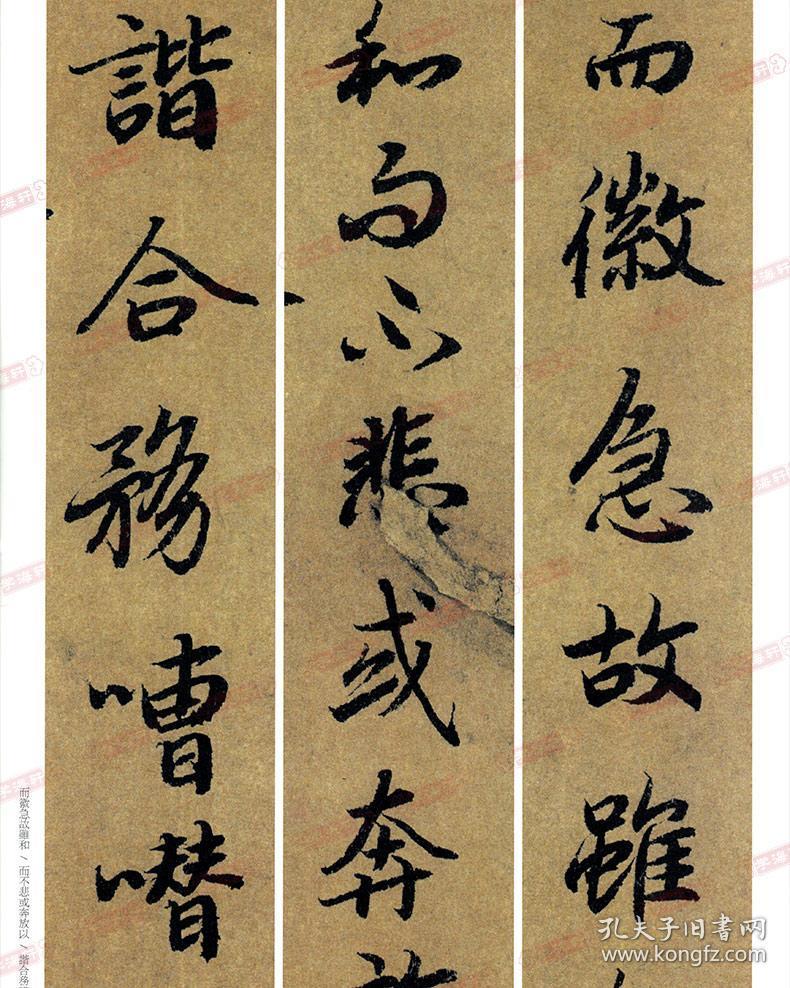 而徽急故雖
和而不悲或奔放
諧合務嘈囋
而徽急故雖和 / 而不悲或奔放以 / 諧合務
学海轩
孔夫子旧书网
www.kongfz.com